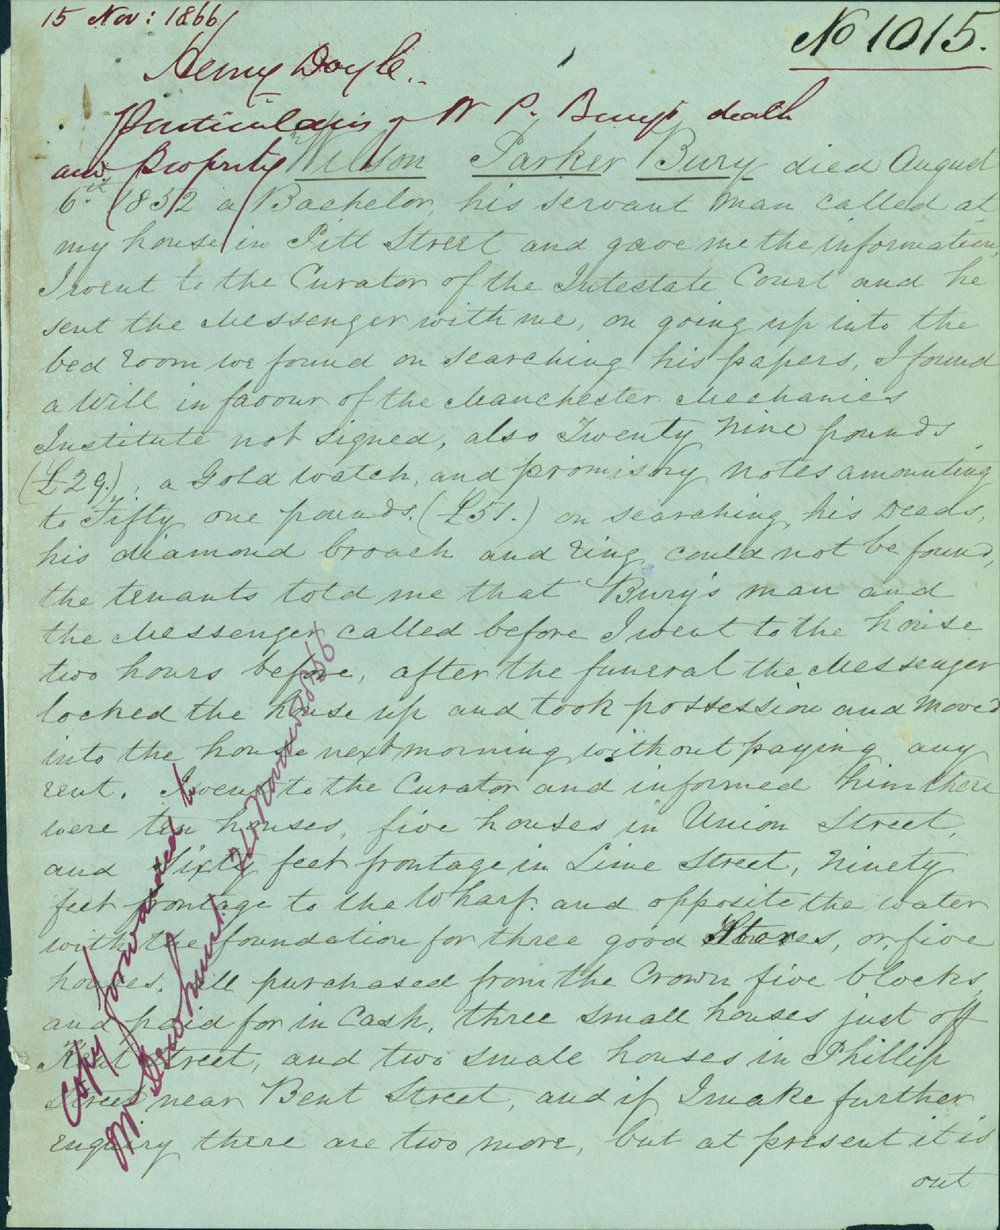 15 Nov: 1866
No 1015.
Henry Doyle.
Particulars of W P. Bury's death
and Property
Wilson Parker Bury died August
6th 1832 a Bachelor, his servant man called at
my house in Pitt Street and gave me the information,
I went to the Curator of the Intestate Court and he
sent the Messenger with me, on going up into the
bed room we found on searching his papers, I found
a Will in favour of the Manchester Mechanics
Institute not signed, also Twenty Nine pounds
(£29.), a Gold watch, and promisory notes amounting
to Fifty one pounds. (£51.) on searching his Deeds,
his diamond broach and ring could not be found,
the tenants told me that Bury's man and
the Messenger called before I went to the house
two hours before, after the funeral the Messenger
locked the house up and took possession and moved
into the house next morning without paying any
rent. I went to the Curator and informed him there
were ten houses, five houses in Union Street,
and Sixty feet frontage in Lime Street, Ninety
feet frontage to the Wharf and opposite the water
with the foundation for three good Stores, or five
houses. All purchased from the Crown five blocks
and paid for in Cash, three small houses just off
Kent Street, and two small houses in Phillip
Street near Bent Street, and if I make further
enquiry there are two more, but at present it is
out
Copy forwarded to
Mr 24 November 1866